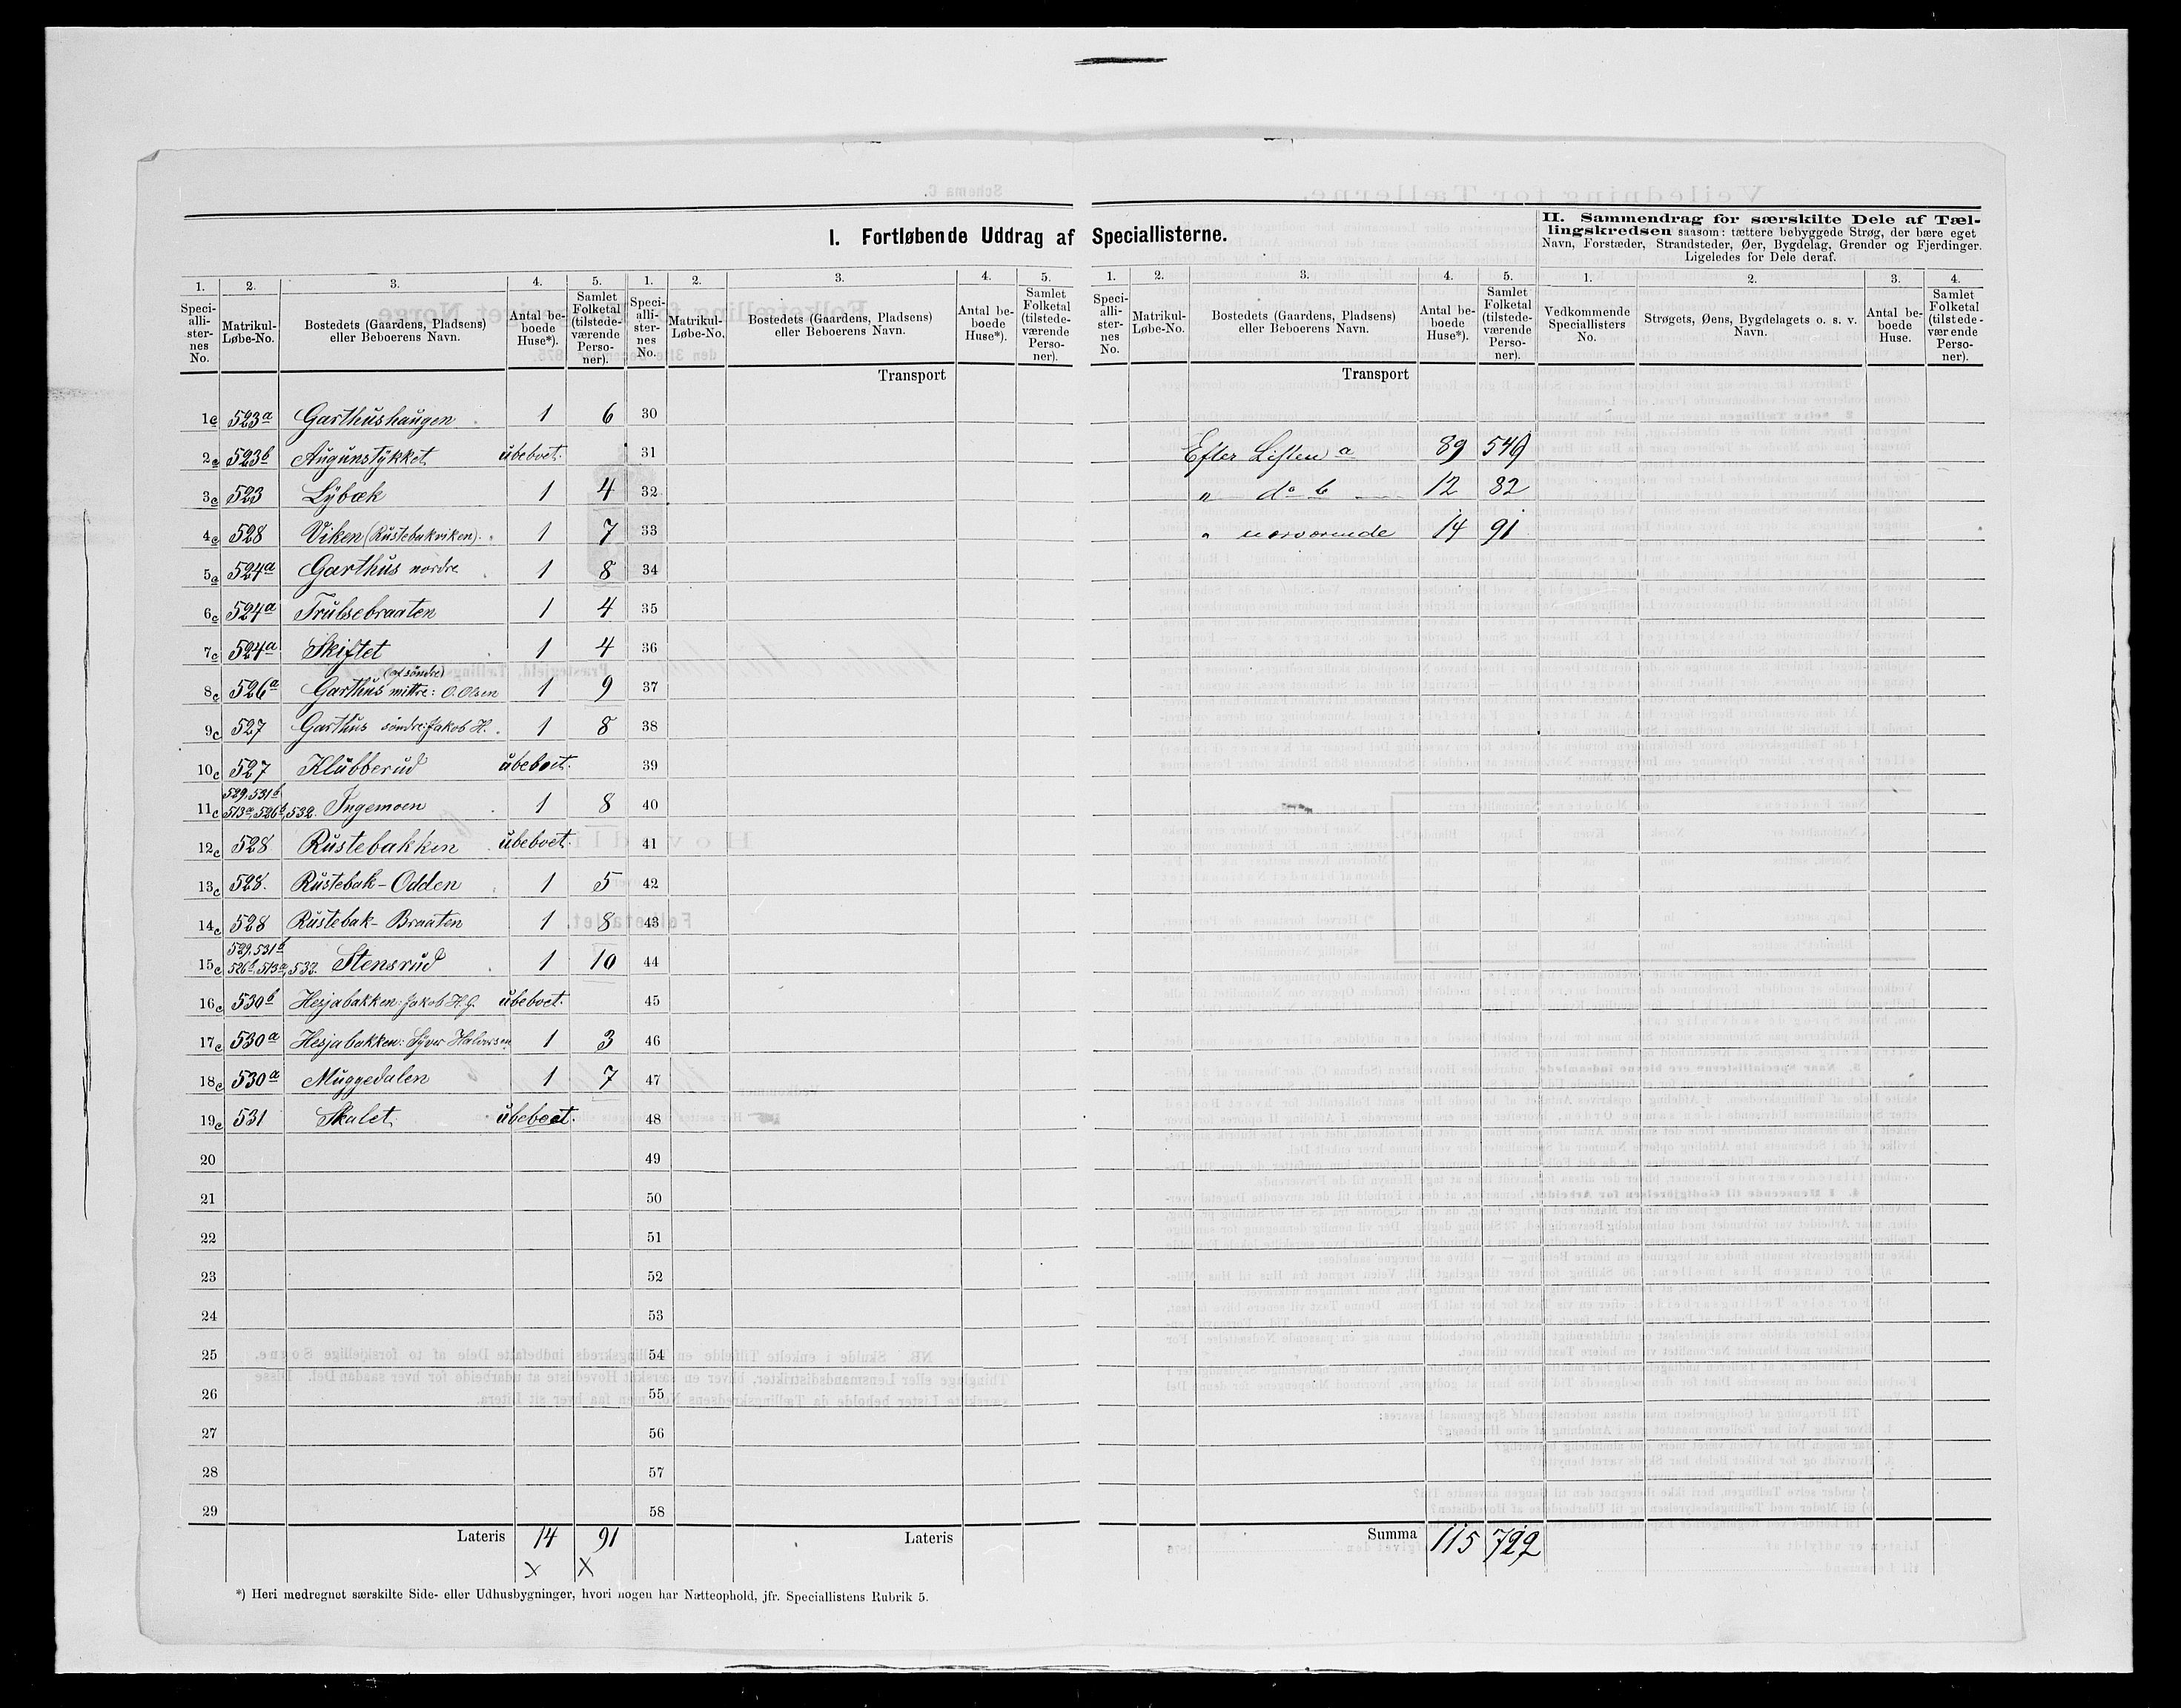 I. Fortløbende Uddrag af Speciallisterne.
II. Sammendrag for særskilte Dele af Tæl-
lingskredsen saasom: tættere bebyggede Strøg, der bære eget
Navn, Forstæder, Strandsteder, Øer, Bygdelag, Grender og Fjerdinger.
Ligeledes for Dele deraf.
1. 2. 3. 4. 5. 1. 2. 3. 4. 5. 1. 2. 3. 4. 5. 1. 2. 3. 4.
Speci-alli-ster-nes No. Matrikul-Løbe-No. Bostedets (Gaardens, Pladsens) eller Beboerens Navn. Antal be-boede Huse*). Samlet Folketal (tilstede-værende Perso-ner).
Speci-alli-ster-nes No. Matrikul-Løbe-No. Bostedets (Gaardens, Pladsens) eller Beboerens Navn. Antal be-boede Huse*). Samlet Folketal (tilstede-værende Perso-ner).
Speci-alli-ster-nes No. Matrikul-Løbe-No. Bostedets (Gaardens, Pladsens) eller Beboerens Navn. Antal be-boede Huse*). Samlet Folketal (tilstede-værende Perso-ner).
Vedkommende Speciallisters No. Strøgets, Øens, Bygdelagets o. s. v. Navn. Antal be-boede Huse. Samlet Folketal (tilstede-værende Perso-ner).
Transport Transport
1c 523a Garthushaugen 1 6 30
2a 523b Augunstykket ubeboet. 31 Efter Listen a 89 549
3c 523 Lybæk 1 4 32 " do b 12 82
4c 528 Viken (Rustebakviken) 1 7 33 " nærværende 14 91
5a 524a Garthus nordre 1 8 34
6c 524a Trulsebraaten 1 4 35
7c 524a Skiftet 1 4 36
8c 526a Garthus mittre (og søndre): O. Olsen 1 9 37
9c 527 Garthus søndre: Jakob H. 1 8 38
10c 527 Klubberud ubeboet. 39
11c 529, 531b 513a, 526b, 532. Ingemoen 1 8 40
12c 528 Rustebakken ubeboet. 41
13c 528. Rustebak-Odden 1 5 42
14c 528 Rustebak-Braaten 1 8 43
15c 529, 531b 526b, 513a, 533. Stensrud 1 10 44
16c 530b Hesjabakken: Jakob H. G. ubeboet. 45
17c 530a Hesjabakken: Syver Halvorsen 1 3 46
18c 530a Muggedalen 1 7 47
19c 531 Skalet ubeboet. 48
20 49
21 50
22 51
23 52
24 53
25 54
26 55
27 56
28 57
29 58
Lateris 14 91 Lateris Summa 115 722
x x
*) Heri medregnet særskilte Side- eller Udhusbygninger, hvori nogen har Natteophold, jfr. Speciallistens Rubrik 5.